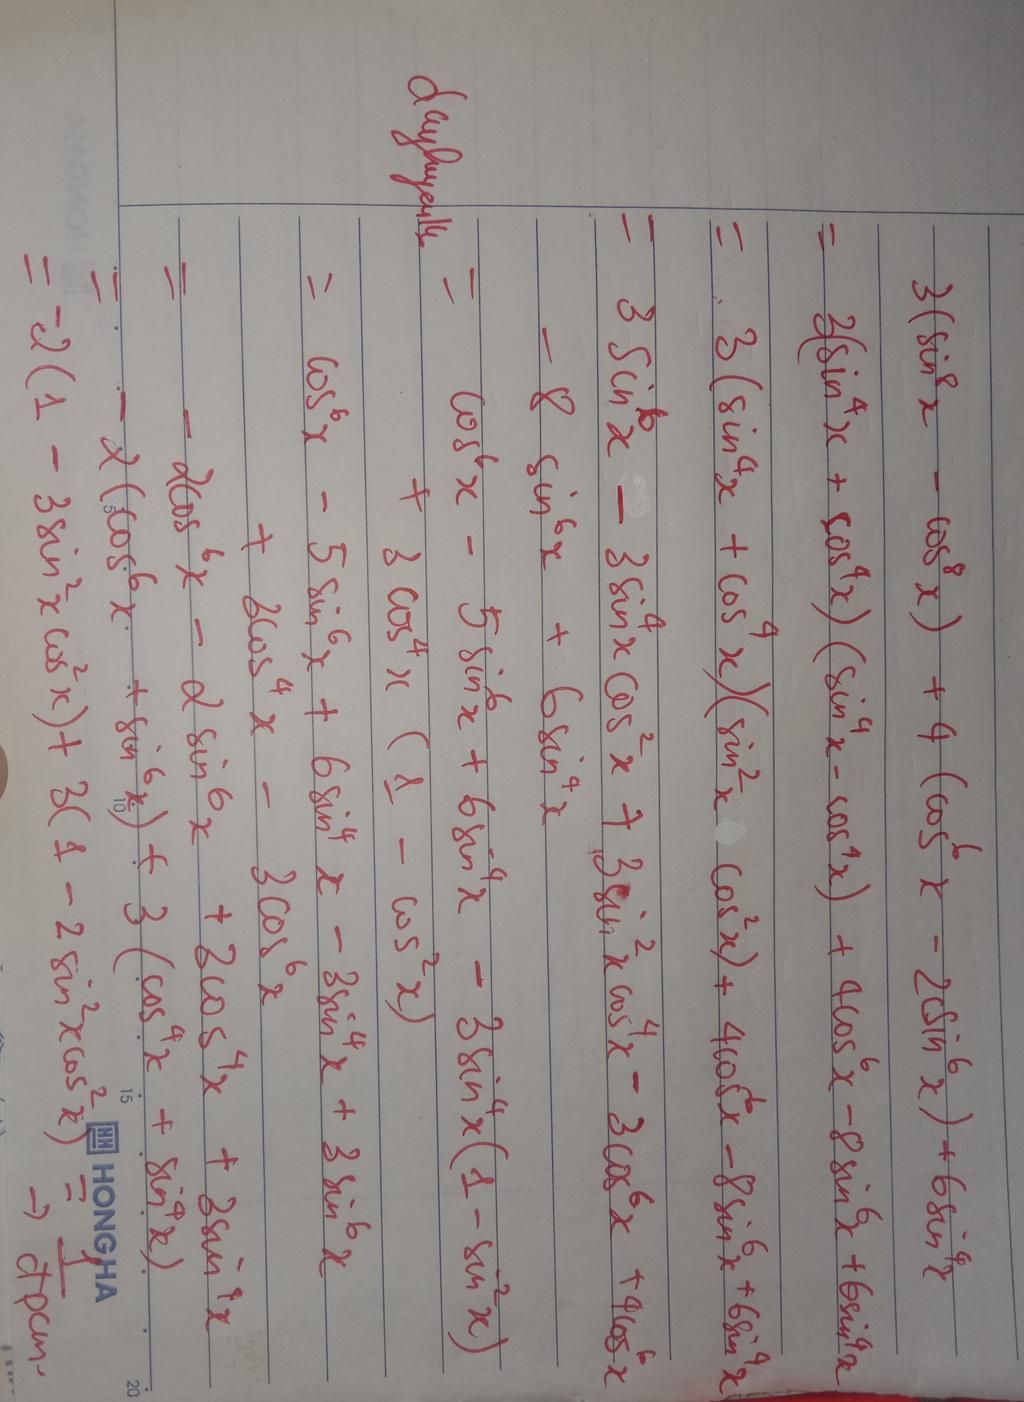 3(sin⁸x - cos⁸x) + 4(cos⁶x - 2sin⁶x) + 6sin⁴x
= 3(sin⁴x + cos⁴x)(sin⁴x - cos⁴x) + 4cos⁶x - 8sin⁶x + 6sin⁴x
= 3(sin⁴x + cos⁴x)(sin²x cos²x) + 4cos⁶x - 8sin⁶x + 6sin⁴x
= 3sin⁶x - 3sin⁴xcos²x + 3sin²xcos⁴x - 3cos⁶x + 4cos⁶x
- 8sin⁶x + 6sin⁴x
= cos⁶x - 5sin⁶x + 6sin⁴x - 3sin⁴x(1 - sin²x)
+ 3cos⁴x(1 - cos²x)
= cos⁶x - 5sin⁶x + 6sin⁴x - 3sin⁴x + 3sin⁶x
+ 3cos⁴x - 3cos⁶x
= -2cos⁶x - 2sin⁶x + 3cos⁴x + 3sin⁴x
= -2(cos⁶x + sin⁶x) + 3(cos⁴x + sin⁴x)
= -2(1 - 3sin²xcos²x) + 3(1 - 2sin²xcos²x) = 1
→ đpcm.
5 10 15 20
HH HONGHA